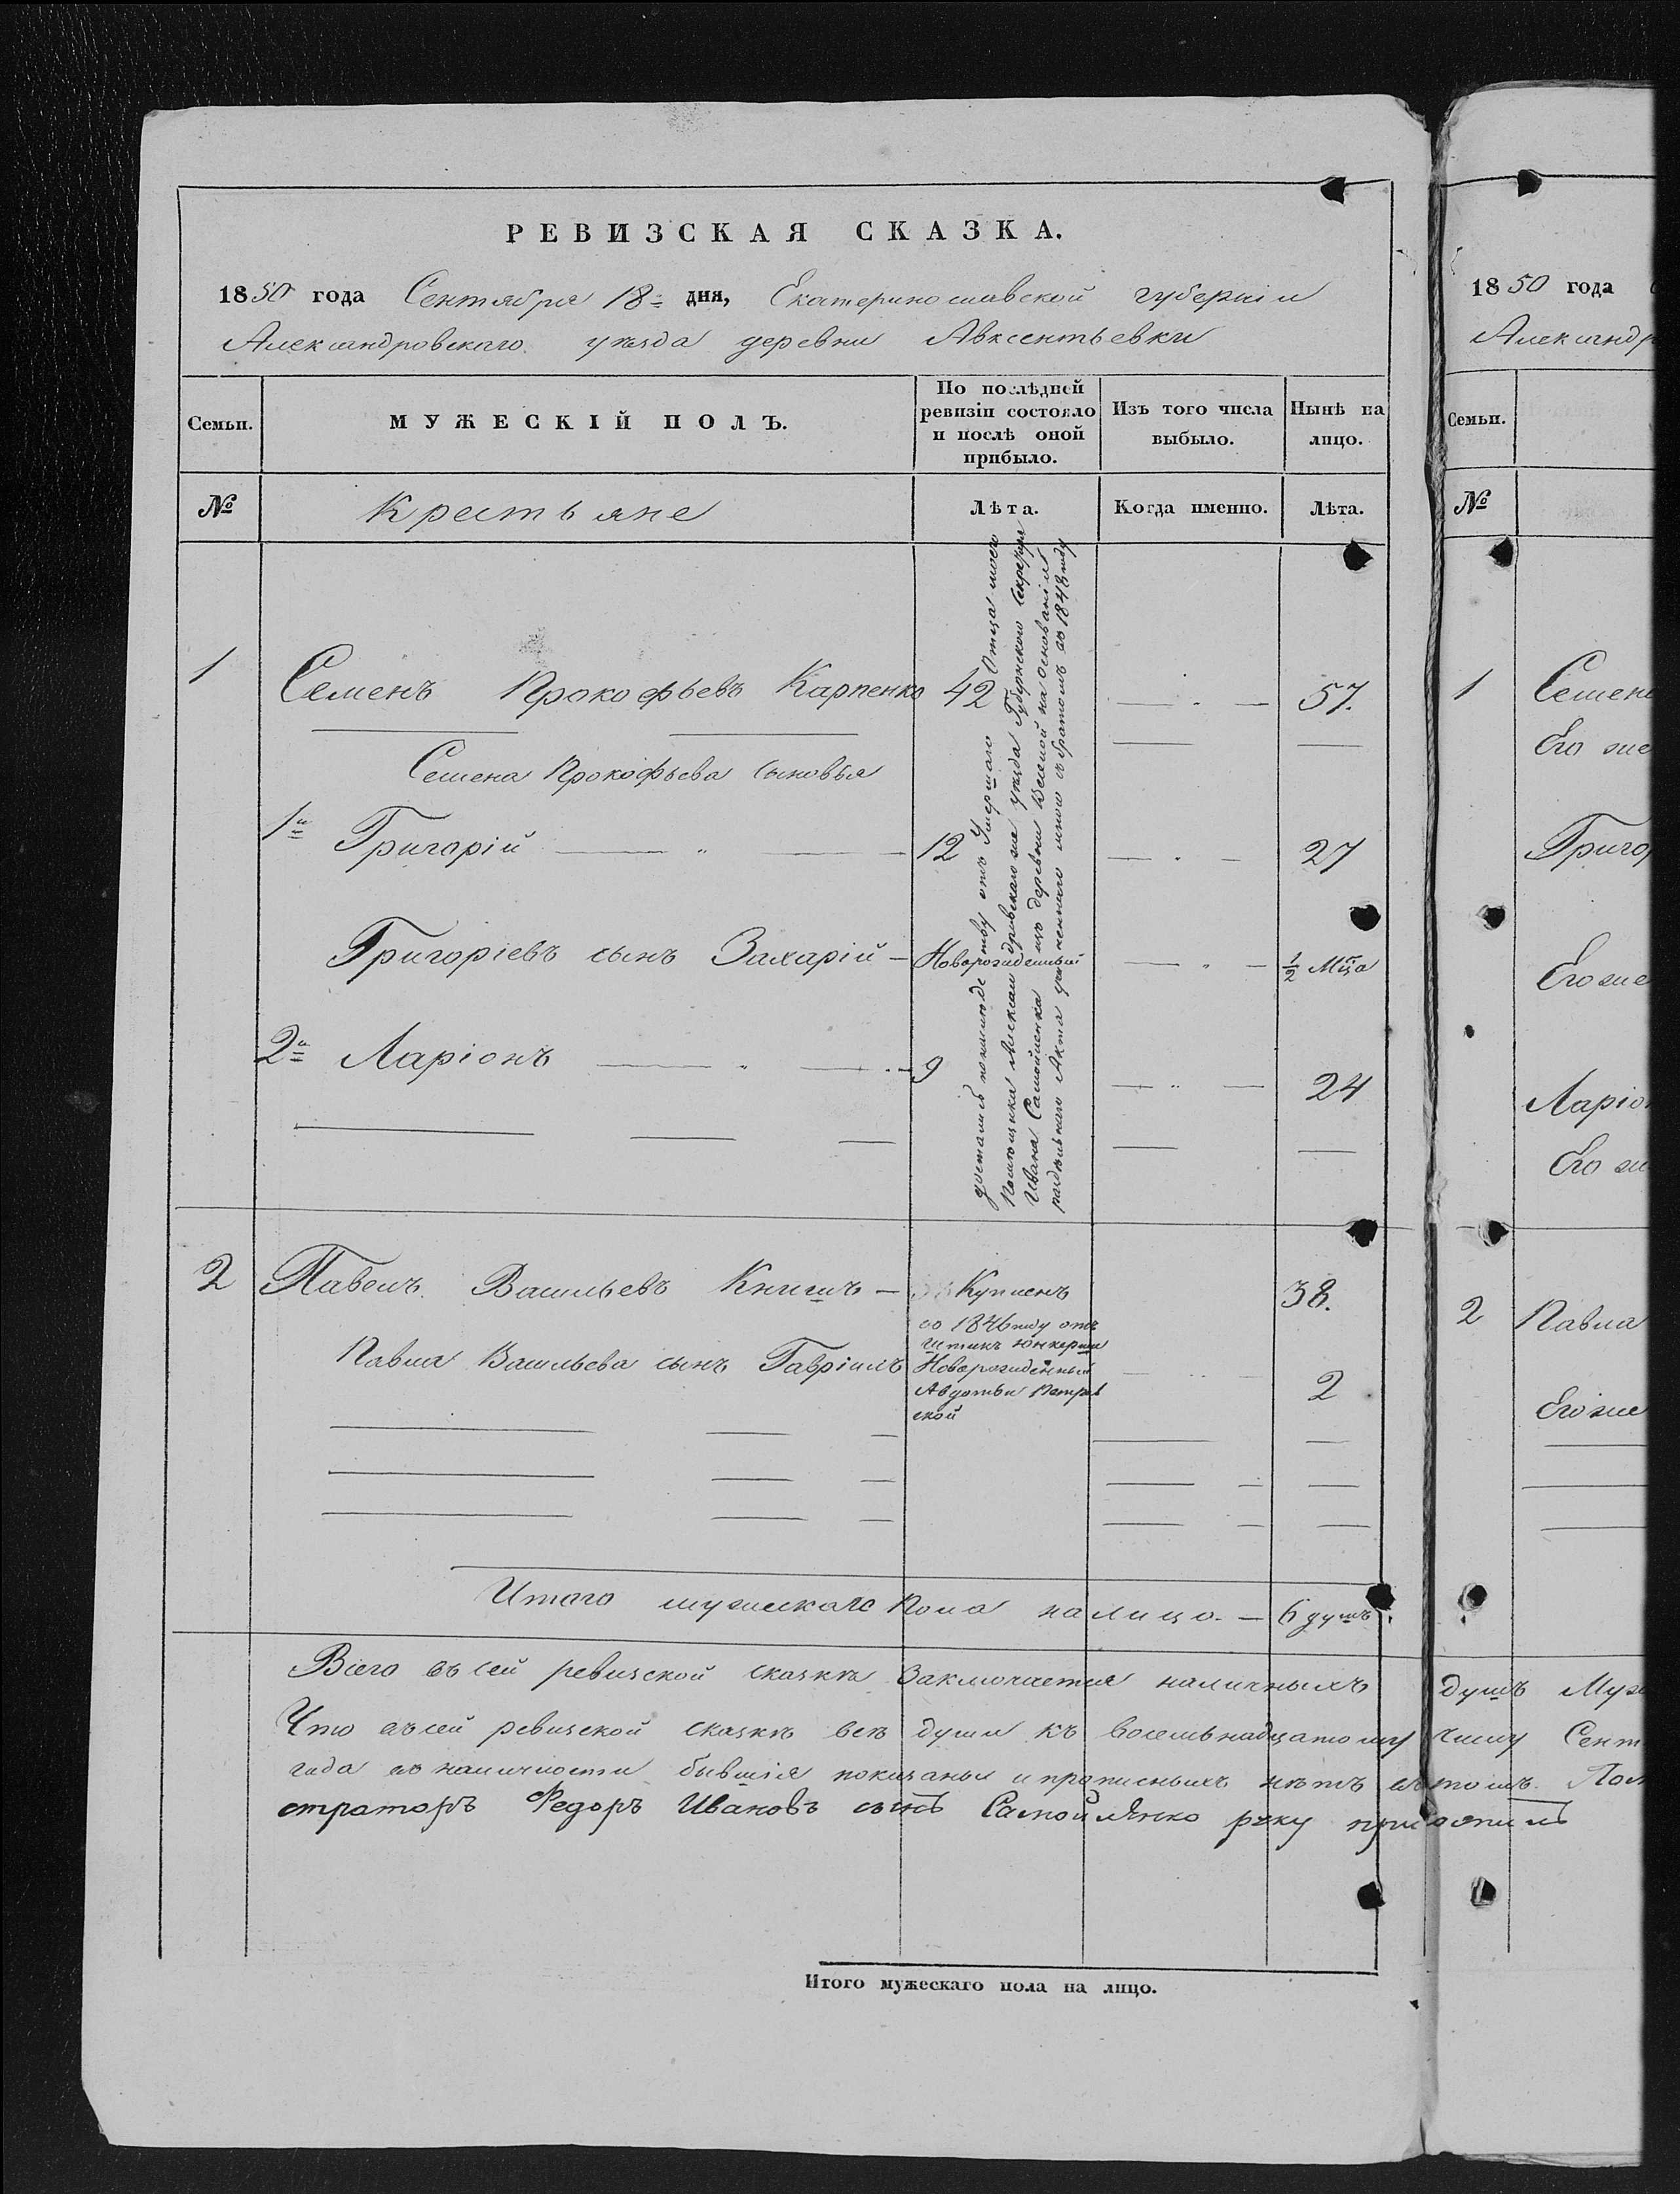 РЕВИЗСКАЯ СКАЗКА.
1850 года Сентября 18го дня, Екатеринославской губерніи
Александровскаго уѣзда деревни Авксентьевки
Семьи.
МУЖЕСКІЙ ПОЛЪ.
По послѣдней
ревизіи состояло
и послѣ оной
прибыло.
Изъ того числа
выбыло.
Нынѣ на
лицо.
№
Крестьяне
Лѣта.
Когда именно.
Лѣта.
1 Семенъ Прокофьевъ Карпенко 42 57.
Семена Прокофьева сыновья
1й Григорій 12 27
Григоріевъ сынъ Захарій Новорожденный ½ Мца
2й Ларіонъ 9 24
достались по наслѣдству отъ Умершаго Отца моего
Помѣщика Александровскаго же уѣзда Губернскаго Секретаря
Ивана Самойленка изъ деревни Веселой на основаніи
раздѣльнаго Акта учиненнаго мною съ братомъ въ 1848 году
2 Павелъ Васильевъ Книшъ Купленъ 38.
во 1846 году отъ
Штикъ Юнкерши
Павла Васильева сынъ Гавріилъ Новорожденный 2
Авдотьи Петров
ской
Итого мужескаго пола на лицо. 6 душъ
Всего въ сей ревизской сказкѣ заключается наличныхъ душъ Муж
Что въ сей ревизской сказкѣ всѣ души къ восемьнадцатому числу Сент
года въ наличности бывшія показаны и прописныхъ нѣтъ въ томъ
стратортъ Федоръ Ивановъ сынъ Самойленко руку приложилъ
Итого мужескаго пола на лицо.
1850 года
Александр
Семьи.
№
1 Семен
Его же
Григо
Его же
Ларіо
Его
2 Павла
Его же